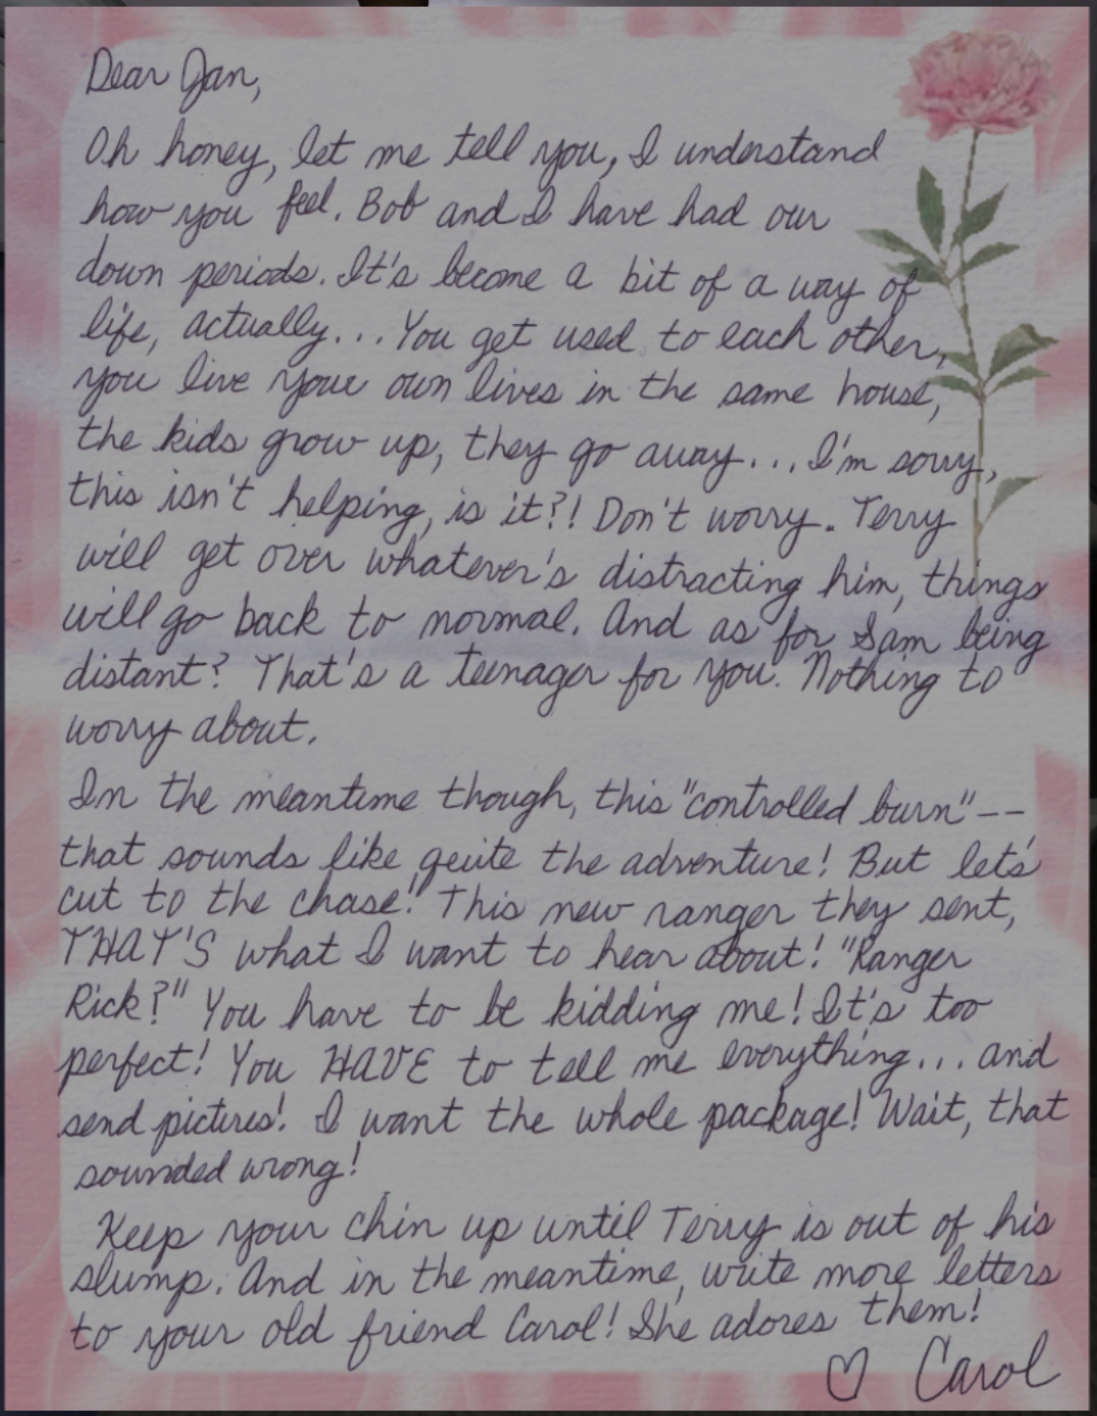 Dear Jan,
Oh honey, let me tell you, I understand
how you feel. Bob and I have had our
down periods. It's become a bit of a way of
life, actually... You get used to each other,
you live your own lives in the same house,
the kids grow up, they go away... I'm sorry,
this isn't helping, is it?! Don't worry. Terry
will get over whatever's distracting him, things
will go back to normal. And as for Sam being
distant? That's a teenager for you. Nothing to
worry about.
In the meantime though, this "controlled burn"--
that sounds like quite the adventure! But let's
cut to the chase! This new ranger they sent,
THAT'S what I want to hear about! "Ranger
Rick?" You have to be kidding me! It's too
perfect! You HAVE to tell me everything... and
send pictures! I want the whole package! Wait, that
sounded wrong!
Keep your chin up until Terry is out of his
slump. And in the meantime, write more letters
to your old friend Carol! She adores them!
♡ Carol